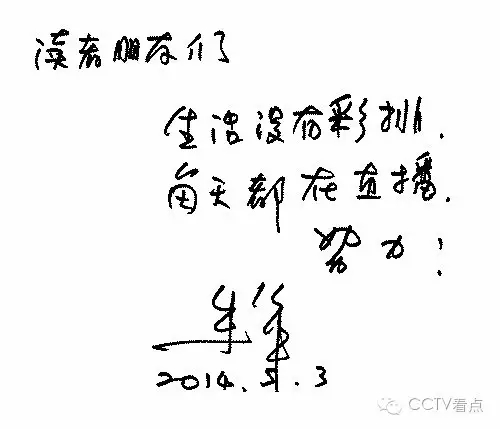 读者朋友们
生活没有彩排.
每天都在直播.
努力!
朱军
2014.5.3
CCTV看点